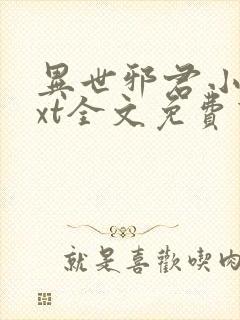 異世邪君小
xt全文免費
就是喜歡喫肉